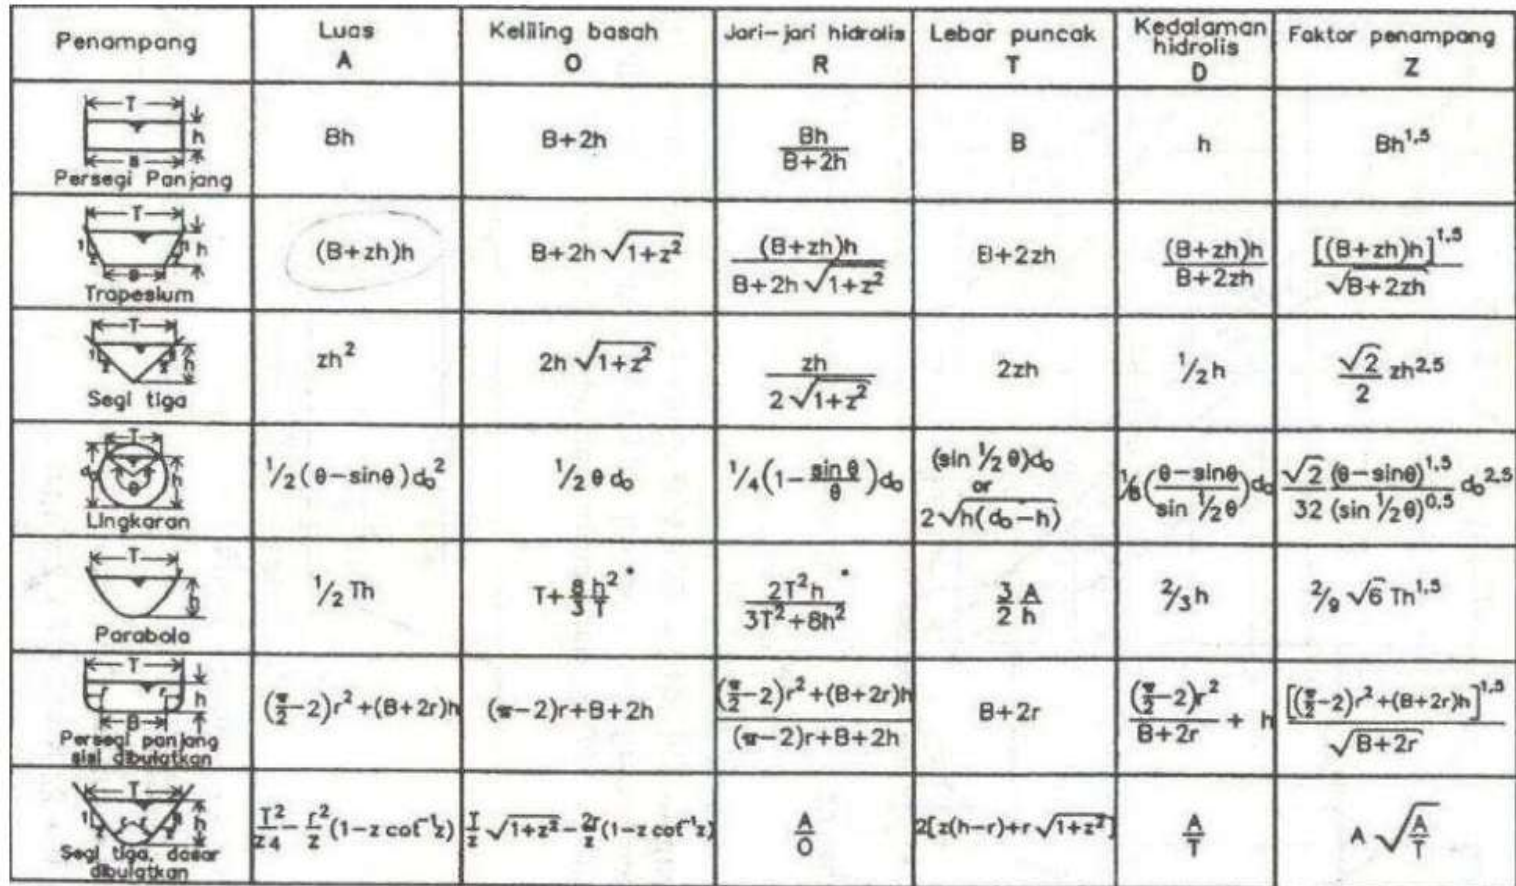 Penampang Luas Keliling basah Jari-jari hidrolis Lebar puncak Kedalaman hidrolis Faktor penampang
A O R T D Z
T h B
Persegi Panjang
Bh B+2h Bh/(B+2h) B h Bh^1,5
T 1 z h B
Trapesium
(B+zh)h B+2h√(1+z²) (B+zh)h/(B+2h√(1+z²)) B+2zh (B+zh)h/(B+2zh) [(B+zh)h]^1,5/√(B+2zh)
T 1 z h
Segi tiga
zh² 2h√(1+z²) zh/(2√(1+z²)) 2zh ½h (√2/2) zh^2,5
T d₀ θ h
Lingkaran
½(θ-sinθ)d₀² ½θd₀ ¼(1-sinθ/θ)d₀ (sin ½θ)d₀ or 2√(h(d₀-h)) ⅛((θ-sinθ)/(sin ½θ))d₀ (√2/32) (θ-sinθ)^1,5/(sin ½θ)^0,5 d₀^2,5
T h
Parabola
½ Th T+(8/3)(h²/T)* 2T²h/(3T²+8h²)* (3/2)(A/h) ⅔h 2/9 √6 Th^1,5
T r r h B
Persegi panjang sisi dibulatkan
(π/2-2)r²+(B+2r)h (π-2)r+B+2h ((π/2-2)r²+(B+2r)h)/((π-2)r+B+2h) B+2r (π/2-2)r²/(B+2r) + h [(π/2-2)r²+(B+2r)h]^1,5/√(B+2r)
T 1 z r r h
Segi tiga, dasar dibulatkan
T²/z4 - r²/z (1-z cot⁻¹z) T/z √(1+z²) - 2r/z (1-z cot⁻¹z) A/O 2[z(h-r)+r√(1+z²)] A/T A√(A/T)